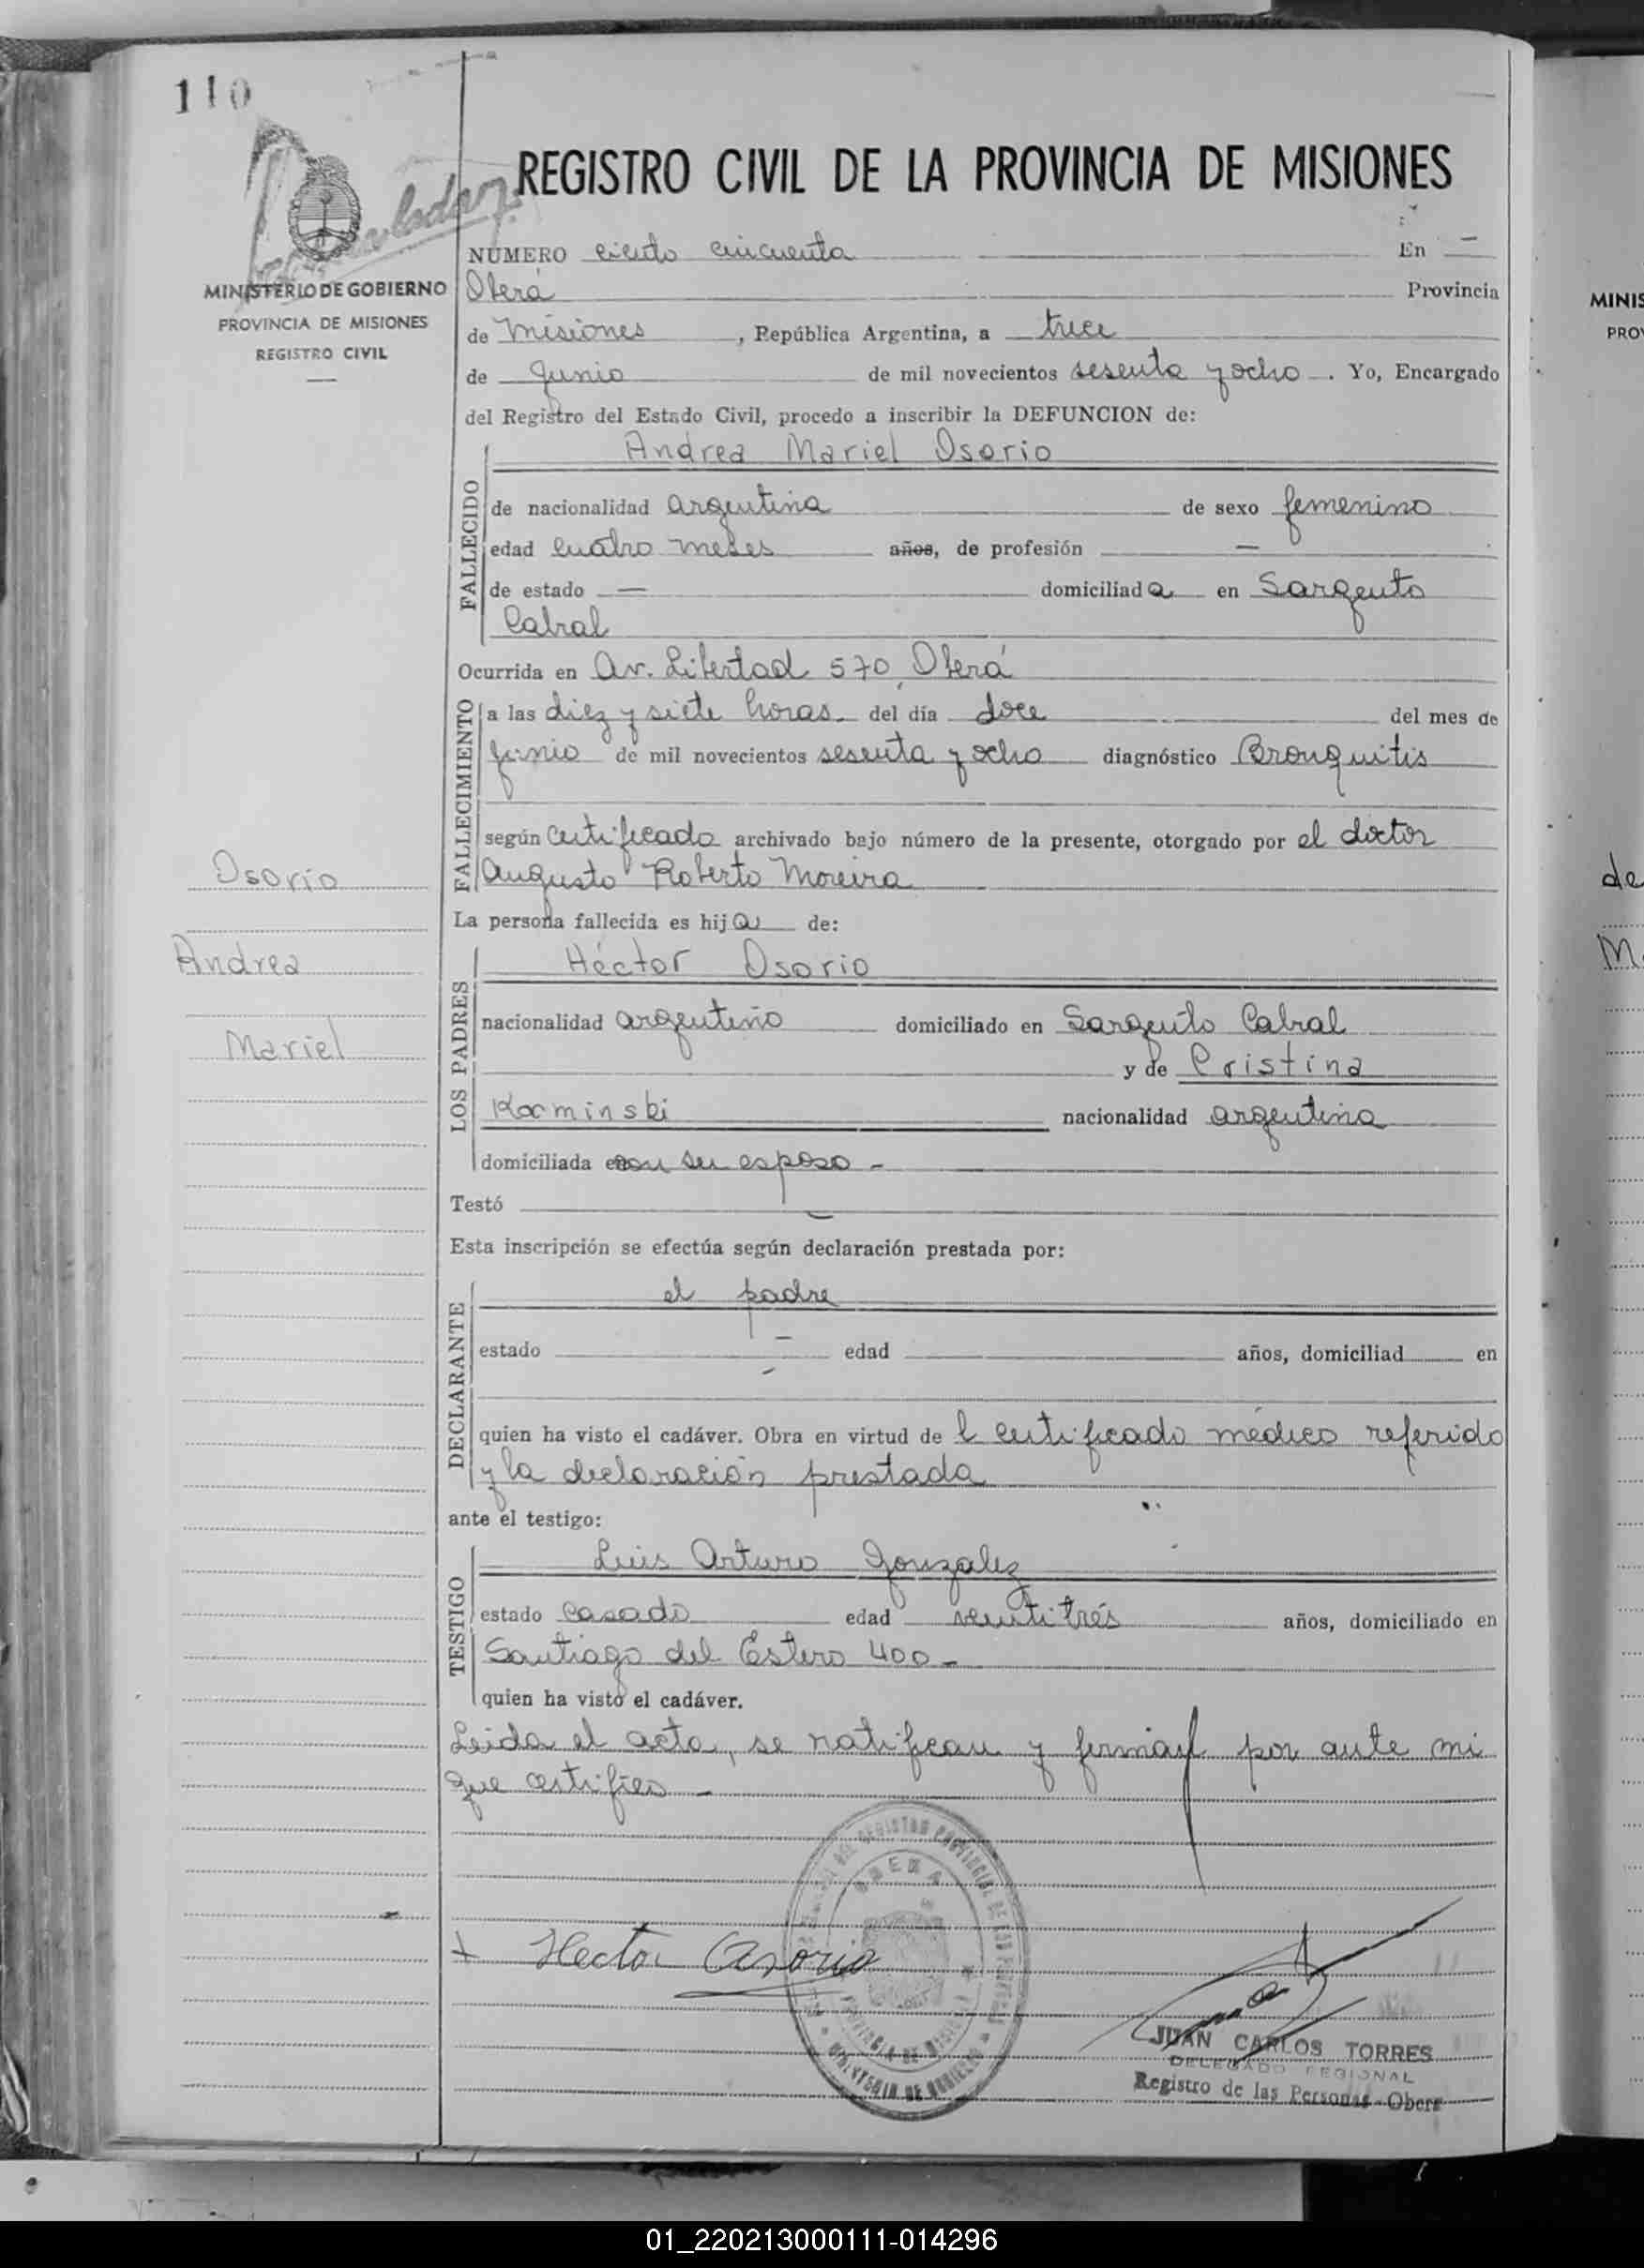 110
REGISTRO CIVIL DE LA PROVINCIA DE MISIONES
MINISTERIO DE GOBIERNO
PROVINCIA DE MISIONES
REGISTRO CIVIL
NÚMERO ciento cincuenta En
Oberá Provincia
de Misiones, República Argentina, a trece
de Junio de mil novecientos sesenta y ocho. Yo, Encargado
del Registro del Estado Civil, procedo a inscribir la DEFUNCION de:
Andrea Mariel Osorio
FALLECIDO
de nacionalidad argentina de sexo femenino
edad cuatro meses años, de profesión —
de estado — domiciliada en Sargento
Cabral
Ocurrida en Av. Libertad 570, Oberá
FALLECIMIENTO
a las diez y siete horas del día doce del mes de
junio de mil novecientos sesenta y ocho diagnóstico Bronquitis
según certificado archivado bajo número de la presente, otorgado por el doctor
Augusto Roberto Moreira
La persona fallecida es hija de:
Osorio
Andrea
Mariel
LOS PADRES
Héctor Osorio
nacionalidad argentino domiciliado en Sargento Cabral
y de Cristina
Korminski nacionalidad argentina
domiciliada con su esposo -
Testó —
Esta inscripción se efectúa según declaración prestada por:
DECLARANTE
el padre
estado — edad años, domiciliad en
quien ha visto el cadáver. Obra en virtud de l certificado médico referido
y la declaración prestada
ante el testigo:
TESTIGO
Luis Arturo Gonzalez
estado casado edad veintitrés años, domiciliado en
Santiago del Estero 400 -
quien ha visto el cadáver.
Leida el acta, se ratifican y firman por ante mi
que certifico -
OBERA
MINISTERIO DE GOBIERNO
Hector Osorio
JUAN CARLOS TORRES
DELEGADO REGIONAL
Registro de las Personas - Oberá
MINIS
PRO
de
M
01_220213000111-014296